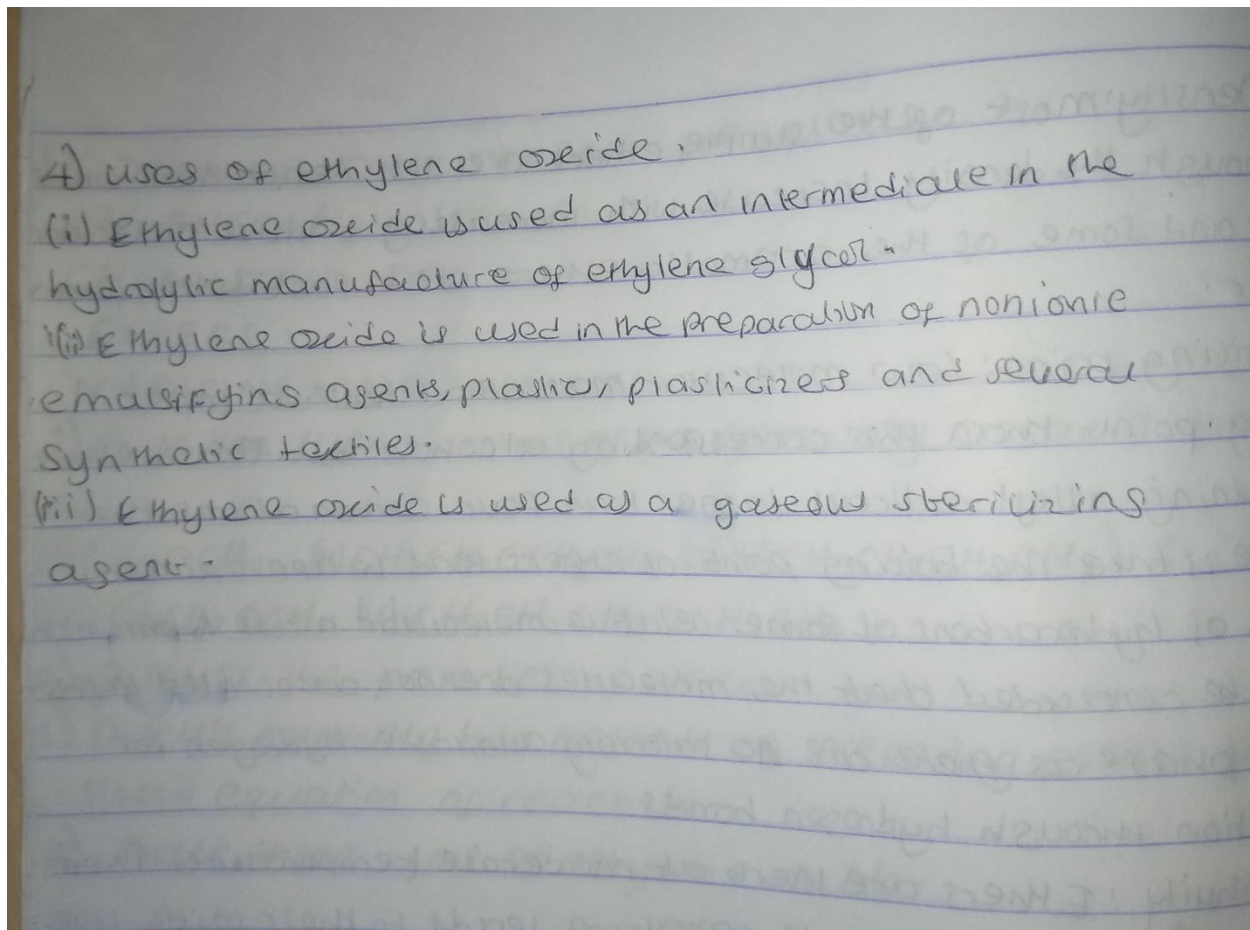 4) uses of ethylene oxide.
(i) Ethylene oxide is used as an intermediate in the
hydrolytic manufacture of ethylene glycol.
(ii) Ethylene oxide is used in the preparation of nonionic
emulsifying agents, plastic, plasticizers and several
synthetic textiles.
(iii) Ethylene oxide is used as a gaseous sterilizing
agent.